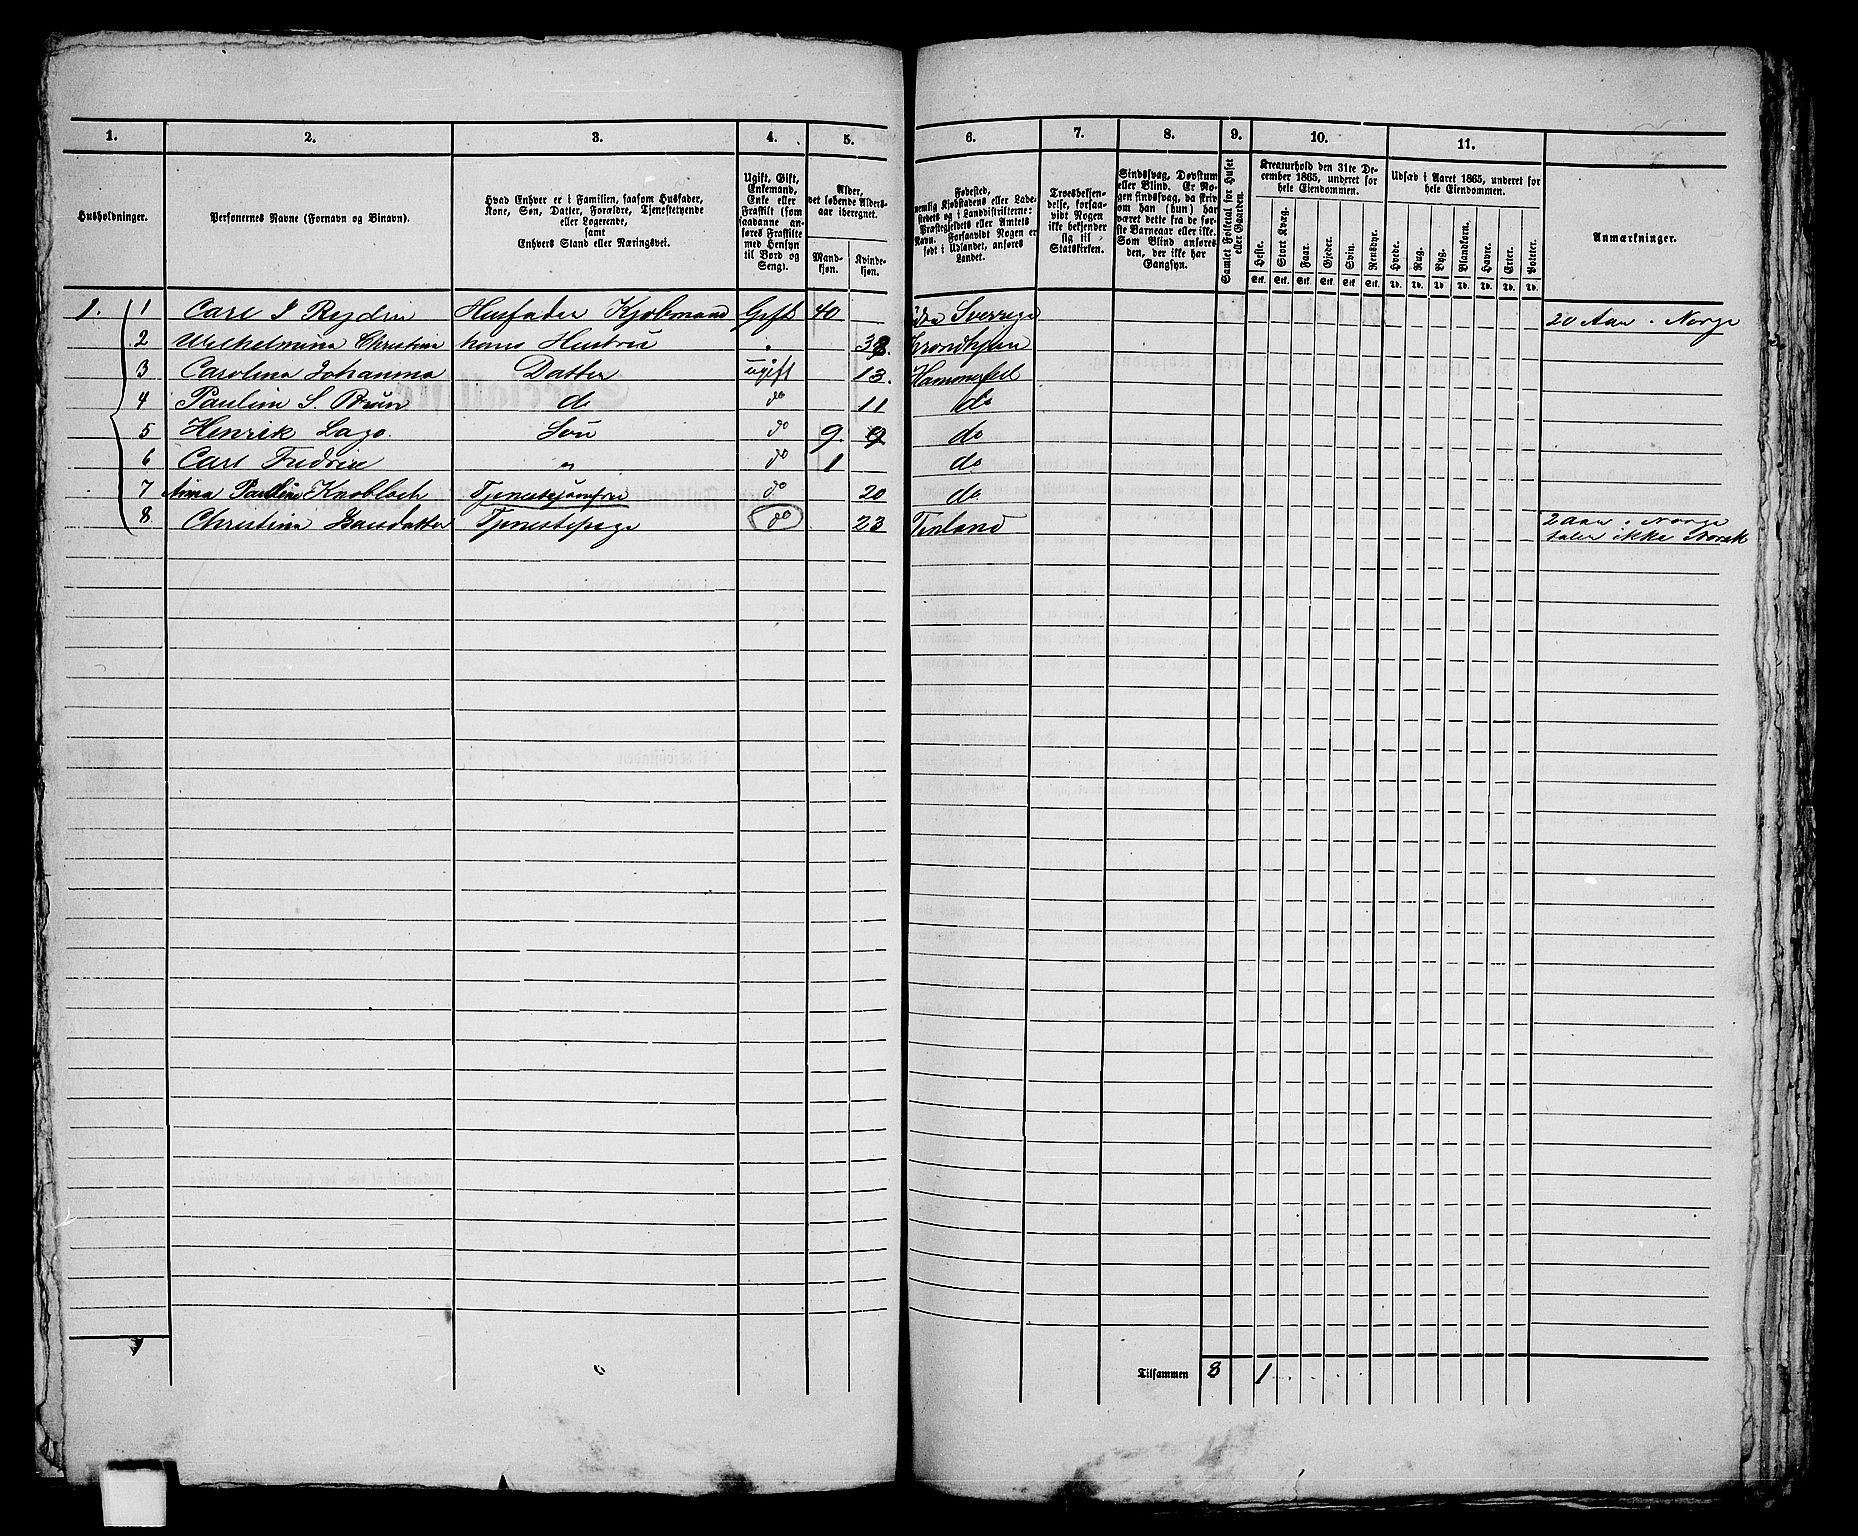 1. 2. 3. 4. 5. 6. 7. 8. 9. 10. 11.
Husholdninger.
Personernes Navne (Fornavn og Binavn).
Hvad Enhver er i Familien, saasom Husfader,
Kone, Søn, Datter, Forældre, Tjenestetyende
eller Logerende,
samt
Enhvers Stand eller Næringsvei.
Ugift, Gift,
Enkemand,
Enke eller
Fraskilt (som
saadanne an-
føres Fraskilte
med Hensyn
til Bord og
Seng).
Alder,
det løbende Alders-
aar iberegnet.
Mand-
kjøn.
Kvinde-
kjøn.
Fødested,
nemlig Kjøbstadens eller Lade-
stedets og i Landdistrikterne:
Præstegjeldets eller Amtets
Navn. Forsaavidt Nogen er
født i Udlandet, anføres
Landet.
Troesbekjen-
delse, forsaa-
vidt Nogen
ikke bekjender
sig til
Statskirken.
Sindssvag, Døvstum
eller Blind. Er No-
gen sindssvag, da skriv
om han (hun) har
været dette fra de før-
ste Barneaar eller ikke.
Som Blind anføres
den, der ikke har
Gangsyn.
Samlet Folketal for Huset
eller Gaarden.
Kreaturhold den 31te De-
cember 1865, underet for
hele Eiendommen.
Heste. Stort Kvæg. Faar. Gjeder. Svin. Rensdyr.
Stk. Stk. Stk. Stk. Stk. Stk.
Udsæd i Aaret 1865, underet for
hele Eiendommen.
Hvede. Rug. Byg. Blandkorn. Havre. Erter. Poteter.
Td. Td. Td. Td. Td. Td. Td.
Anmærkninger.
1. 1 Carl J Rydin Husfader Kjøbmand Gift 40 Sverrige 20 Aar i Norge
2 Wilhelmina Christina hans Hustru " 38. Trondhjem
3 Carolina Johanna Datter ugift 13. Hammerfest
4 Pauline S. Brun do do 11 do
5 Henrik Lago. Søn do 9 9 do
6 Carl Fredrik " do 1 do
7 Anna Pauline Knobloch Tjenestejomfru do 20 do
8 Christina Isaksdatter Tjenestepige do 23 Finland 2 Aar i Norge
taler ikke Norsk
Tilsammen 8 1